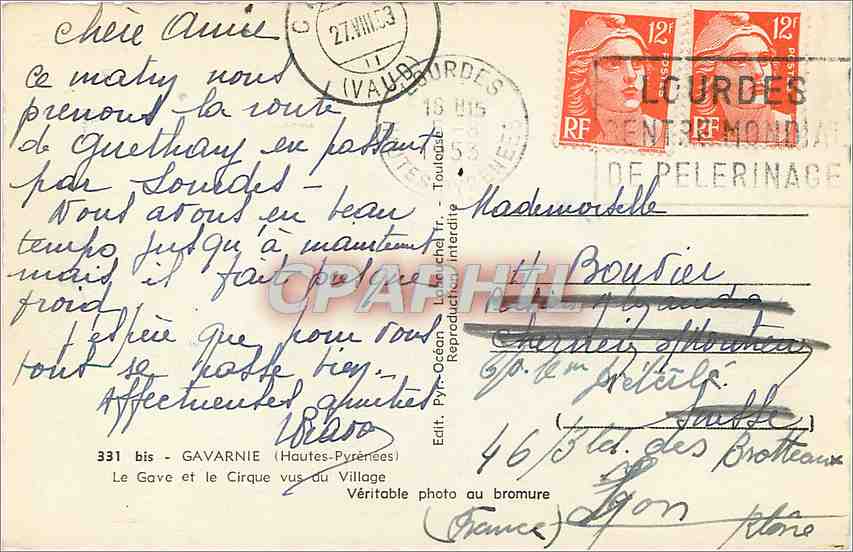 Chère Amie
Ce matin nous
prenons la route
de Guéthary en passant
par Lourdes -
Nous avons eu beau
temps jusqu'à maintenant
mais il fait presque
froid
J'espère que pour vous
tout se passe bien.
Affectueuses amitiés
331 bis - GAVARNIE (Hautes-Pyrénées)
Le Gave et le Cirque vus du Village
Véritable photo au bromure
Edit. Pyr.-Océan - Labouche Fr. - Toulouse
Reproduction interdite
27.VIII.53
(VAUD)
LOURDES
18 H15
1953
HAUTES-PYRENEES
12F
POSTES
RF
12F
POSTES
RF
LOURDES
CENTRE MONDIAL
DE PELERINAGE
Mademoiselle
H Bouvier
Suisse
46 Bld. des Brotteaux
Lyon
(France) Rhône
CPARPHIL